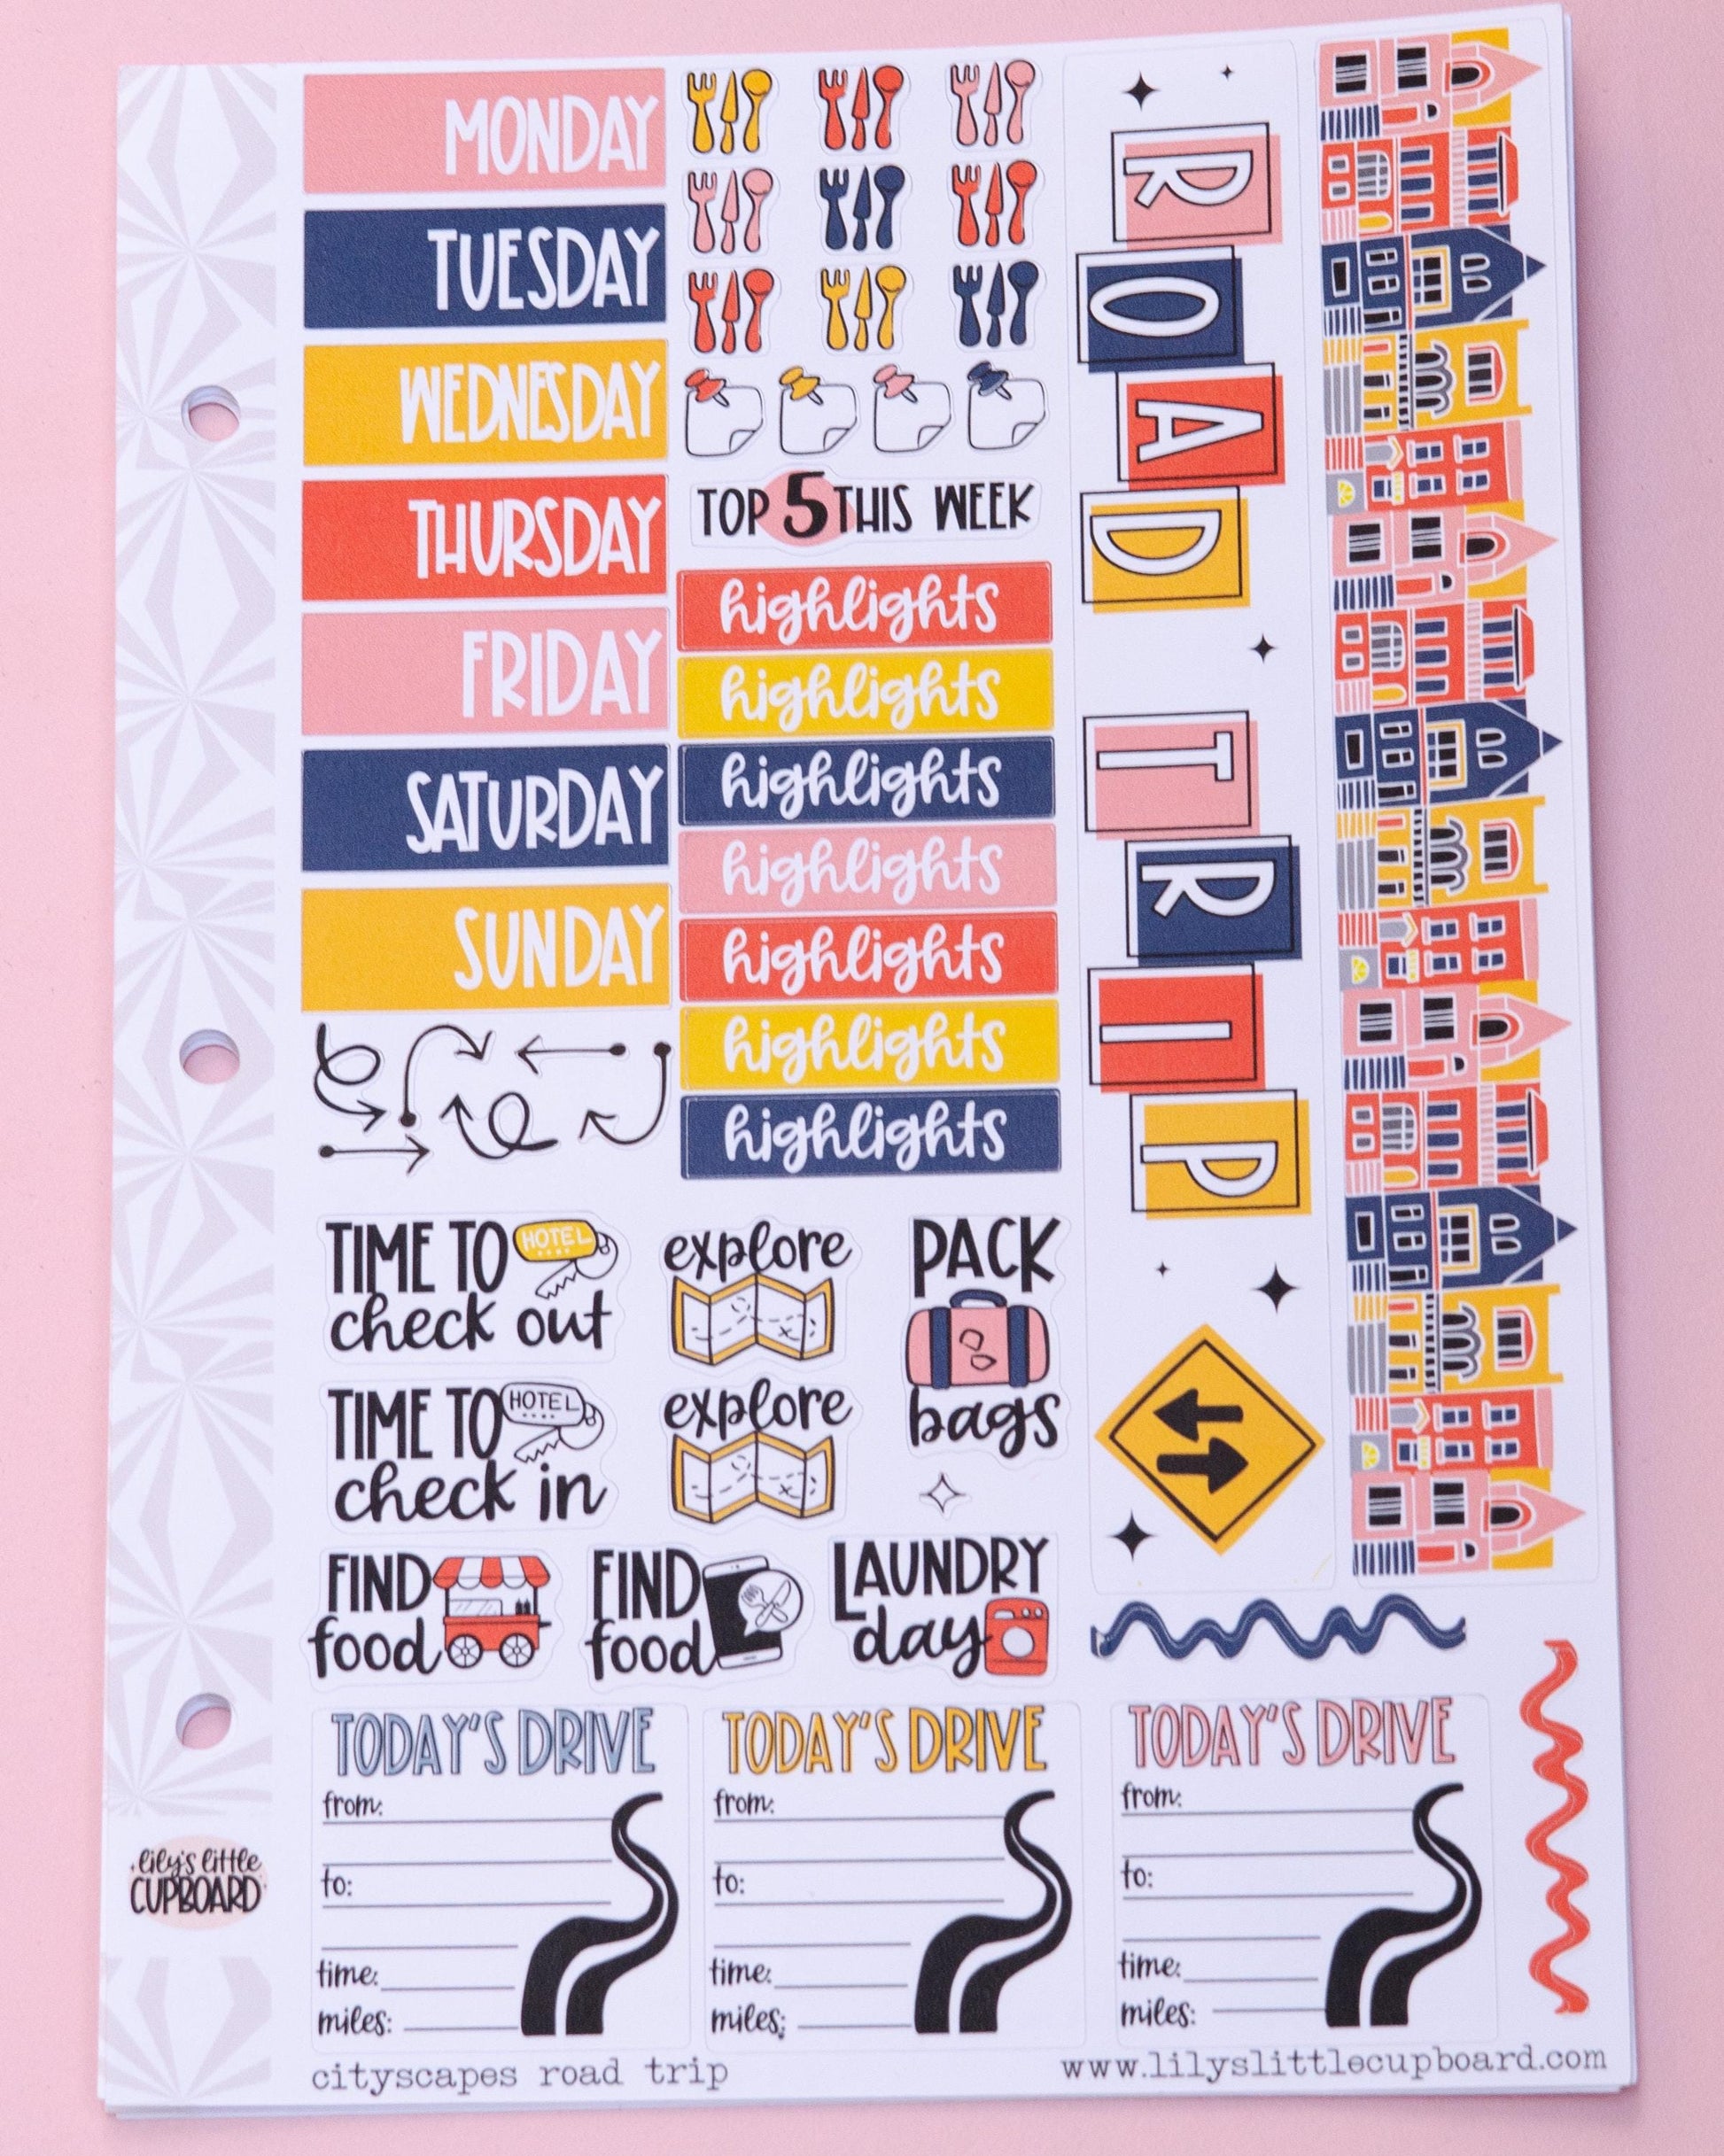 MONDAY
TUESDAY
WEDNESDAY
THURSDAY
FRIDAY
SATURDAY
SUNDAY
TOP 5 THIS WEEK
highlights
highlights
highlights
highlights
highlights
highlights
highlights
ROAD TRIP
TIME TO
HOTEL
check out
explore
PACK
bags
TIME TO
HOTEL
check in
explore
FIND
food
FIND
food
LAUNDRY
day
TODAY'S DRIVE
from:
to:
time:
miles:
TODAY'S DRIVE
from:
to:
time:
miles:
TODAY'S DRIVE
from:
to:
time:
miles:
lily's little
CUPBOARD
cityscapes road trip
www.lilyslittlecupboard.com